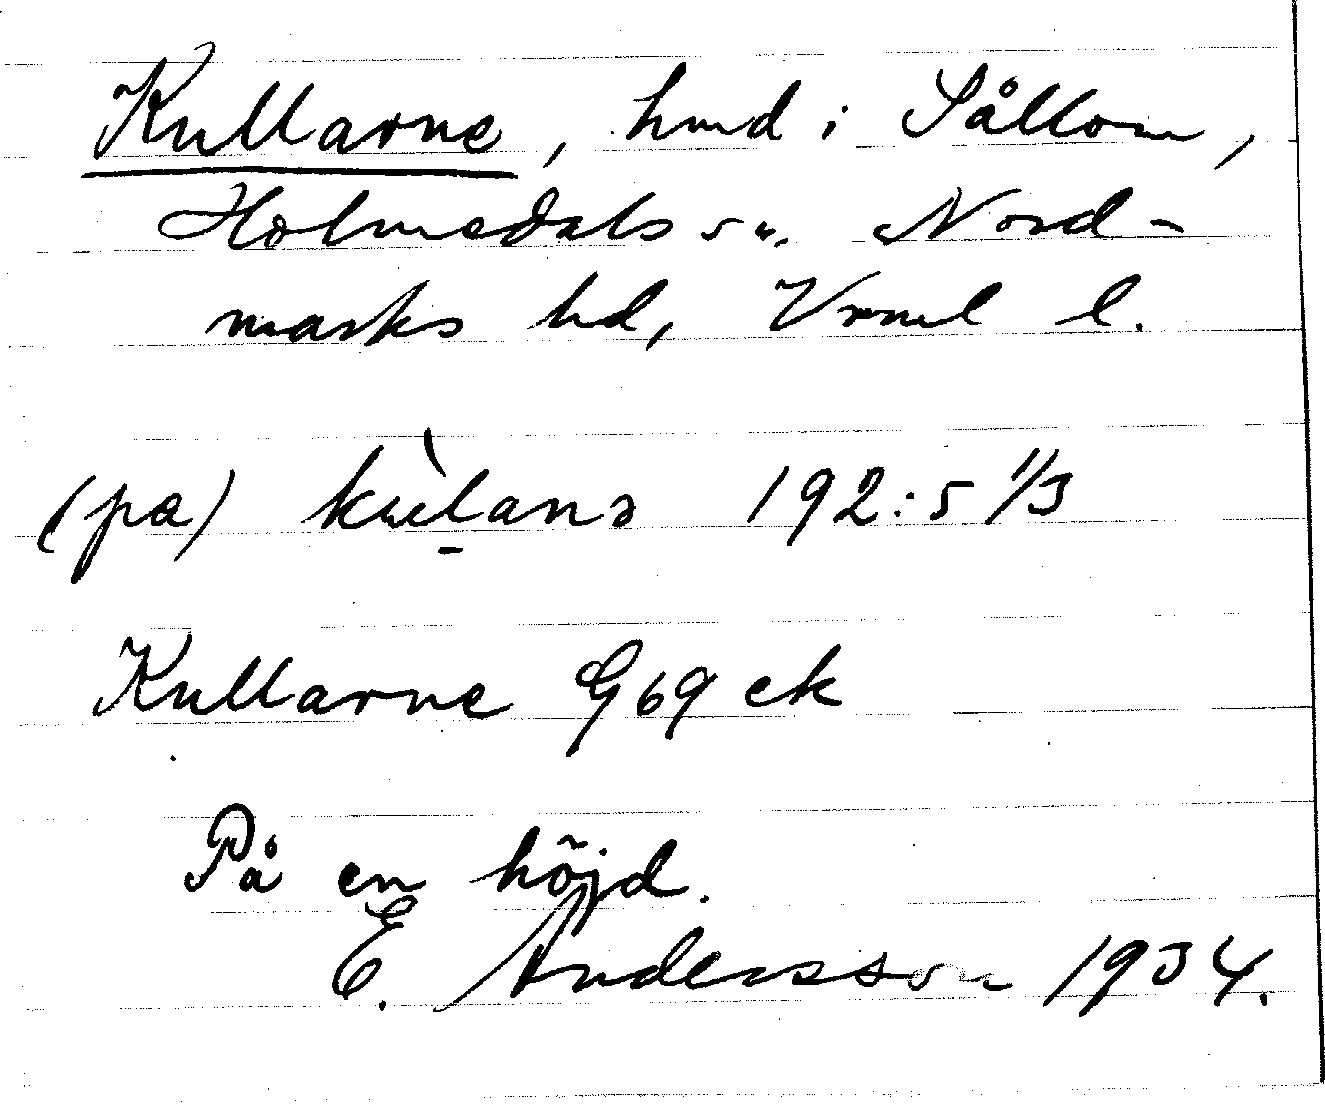 Kullarne, hmd i Sållom,
Holmedals sn. Nord-
marks hd, Vrml l.
(pa) kùlana 192:5 1/3
Kullarne G69 ek
På en höjd.
E. Andersson 1934.